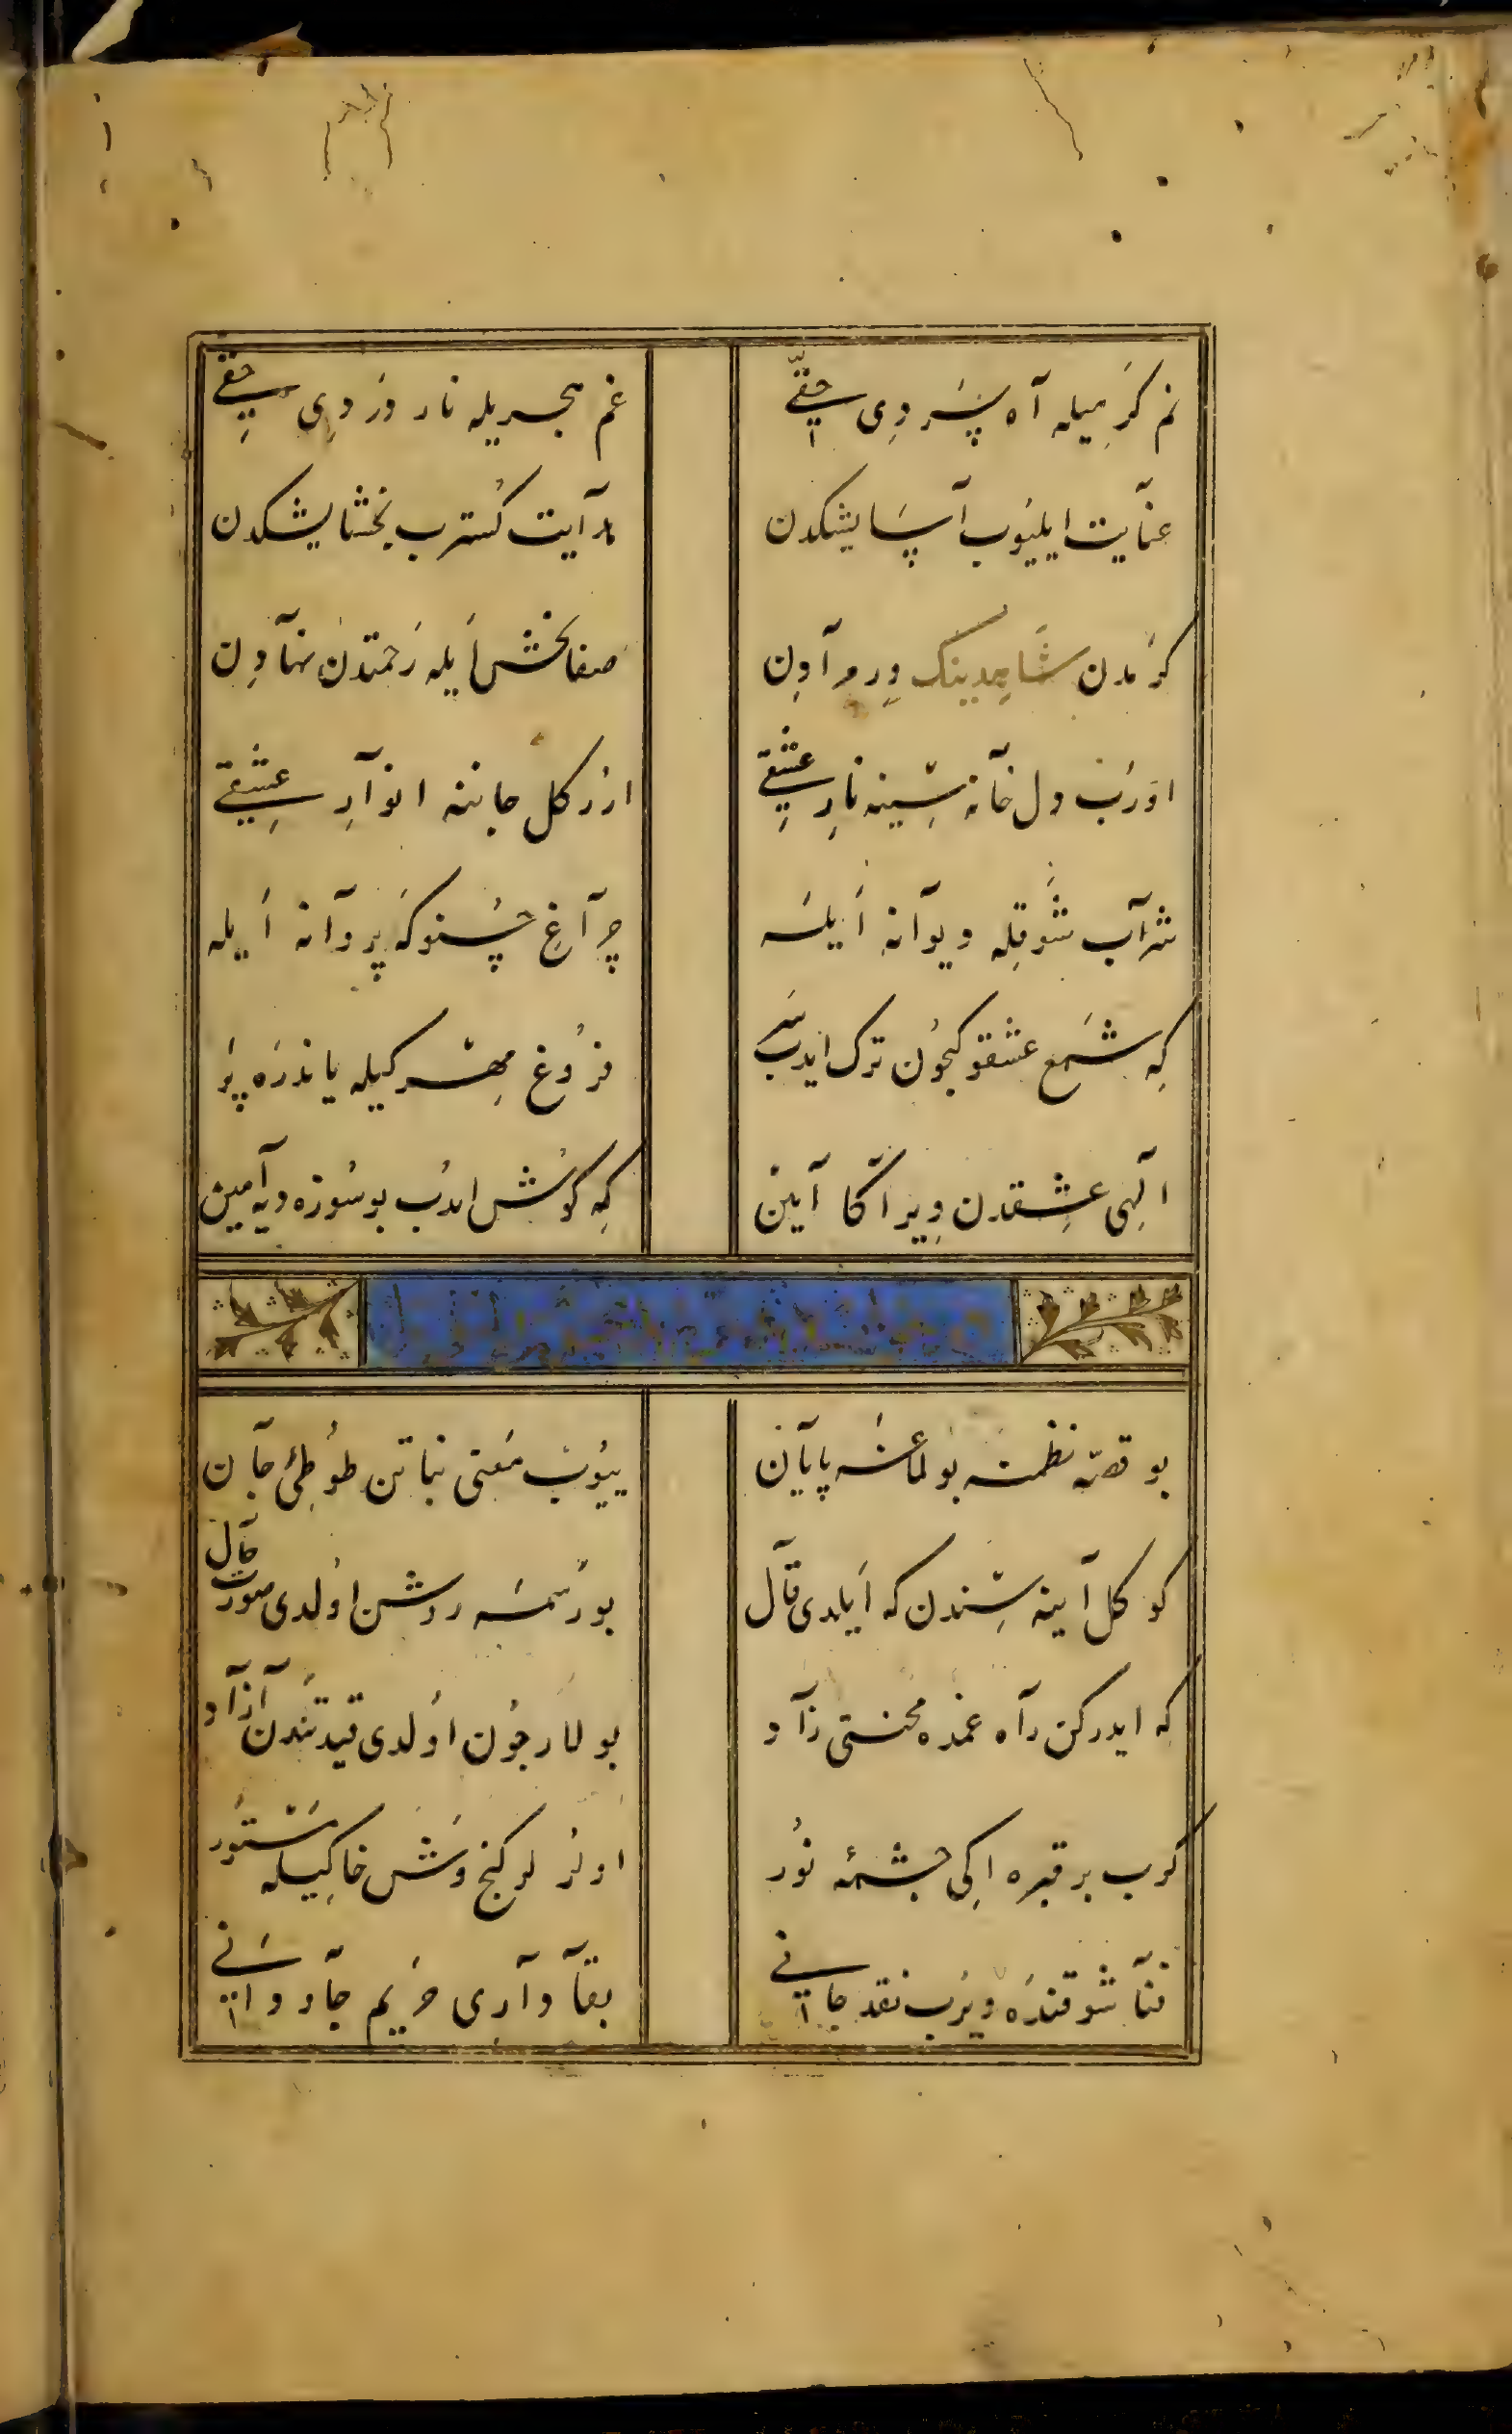 نم کَرمیله آه پَر دِی حقّی غم هجریله نار وزَ دِی حقی
عنآیت ایلیُوب آسَایشکدن هدآیت کُسترب بخشایشکدن
کرَمدن شَاهدینک وِر مرآدِن صفابخش اَیله رَحمتدن نهآدِن
اوَرُبْ دل خآنه سِینه نارِ عشقِی ارُر کل جاننه انوآرِ عشِقی
شرَآب شَوقِله دیوآنه اَیلَه چرآغِ حُسنوکَه پروآنه اَیله
کِه شَمع عشقوکچُون ترک ایدب سَر فرُوغ مِهرکیله یاندرَه پَر
آلهِی عشِقدن وِیر اکآ آیین کِه کوُش ایدُب بوسُوزه دیه آمین
بو قصّه نظمنه بولمآسَه پایآن ییُوب مَعنی نباتن طوُطِئ جآن
کوکل آیینه سِندن که اَیلدی قآل بو رَسمَه روشن اوُلدی صورت حآل
کِه ایدرکن رآه غمده محنتی زآد بولار چُون اوُلدی قید تندن آزآد
کرب بر قبره اکِی چشمهٔ نوُر اولُر لر کنج وَش خاکِیله مَستوُر
فنآ شوقندَه ویرُب نقد جانی بقآ وآری حرَیم جآودوانی